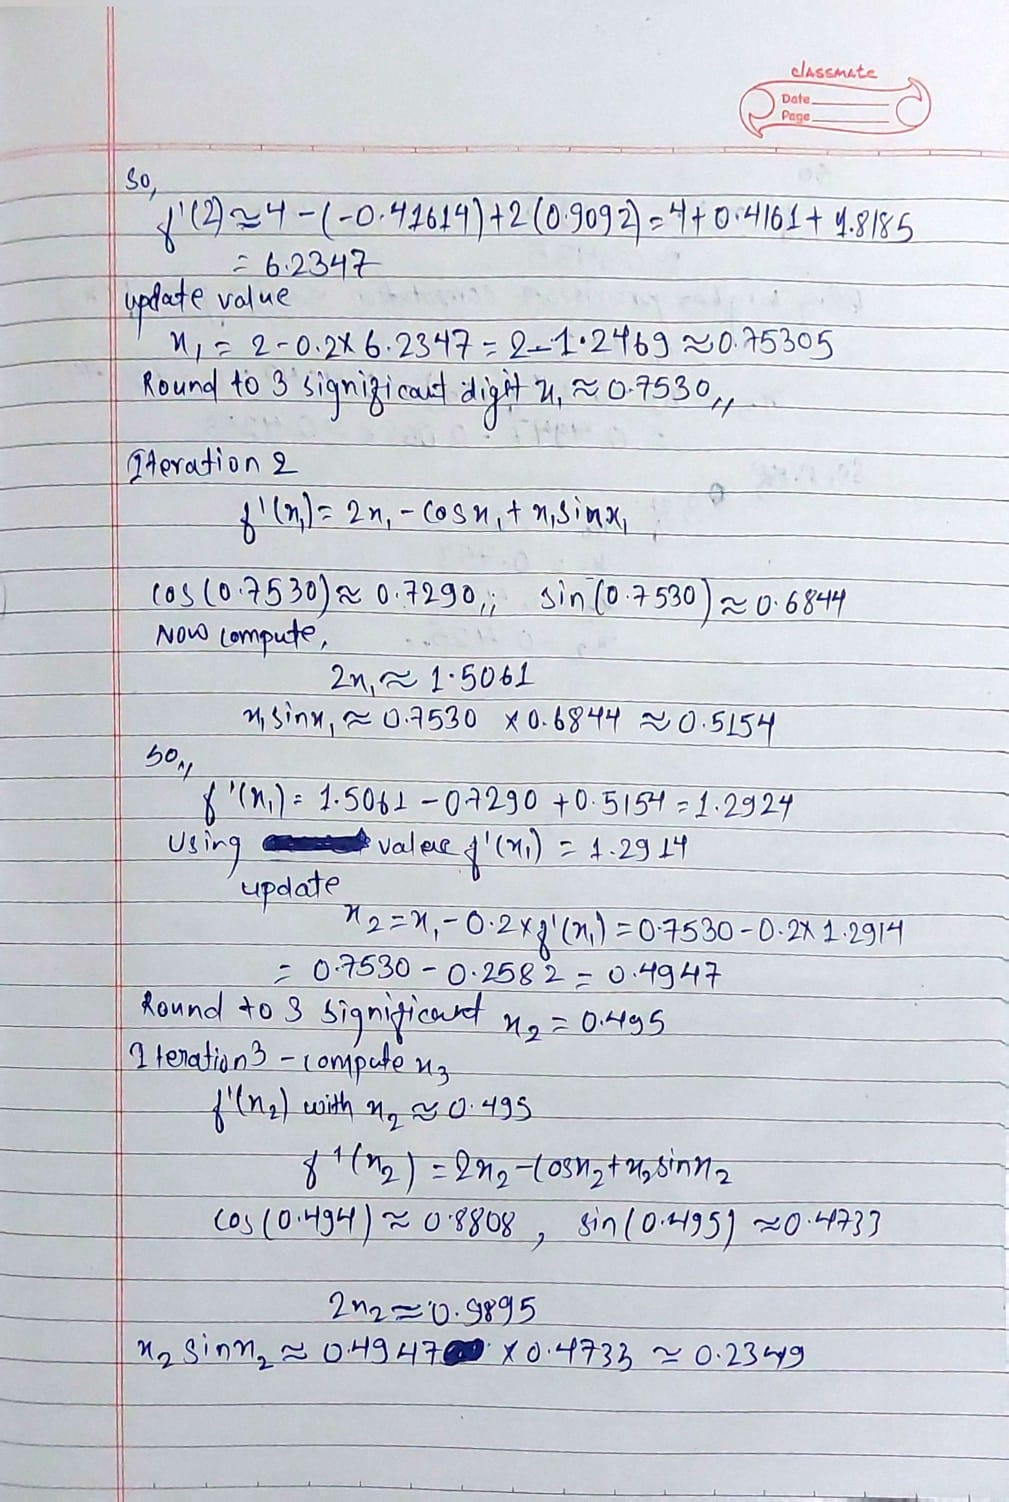 classmate
Date
Page
So,
f'(2) ≈ 4 - (-0.41614) + 2(0.9092) = 4 + 0.4161 + 1.8185
= 6.2347
update value
x₁ = 2 - 0.2 × 6.2347 = 2 - 1.2469 ≈ 0.75305
Round to 3 significant digit x₁ ≈ 0.7530,,
Iteration 2
f'(x₁) = 2x₁ - cosx₁ + x₁sinx₁
cos(0.7530) ≈ 0.7290,,; sin(0.7530) ≈ 0.6844
Now compute,
2x₁ ≈ 1.5061
x₁sinx₁ ≈ 0.7530 × 0.6844 ≈ 0.5154
So,,
f'(x₁) = 1.5061 - 0.7290 + 0.5154 = 1.2924
Using value f'(x₁) = 1.2914
update
x₂ = x₁ - 0.2 × f'(x₁) = 0.7530 - 0.2 × 1.2914
= 0.7530 - 0.2582 = 0.4947
Round to 3 significant x₂ = 0.495
Iteration 3 - compute x₃
f'(x₂) with x₂ ≈ 0.495
f'(x₂) = 2x₂ - cosx₂ + x₂sinx₂
cos(0.494) ≈ 0.8808, sin(0.495) ≈ 0.4733
2x₂ ≈ 0.9895
x₂ sinx₂ ≈ 0.4947 × 0.4733 ≈ 0.2349